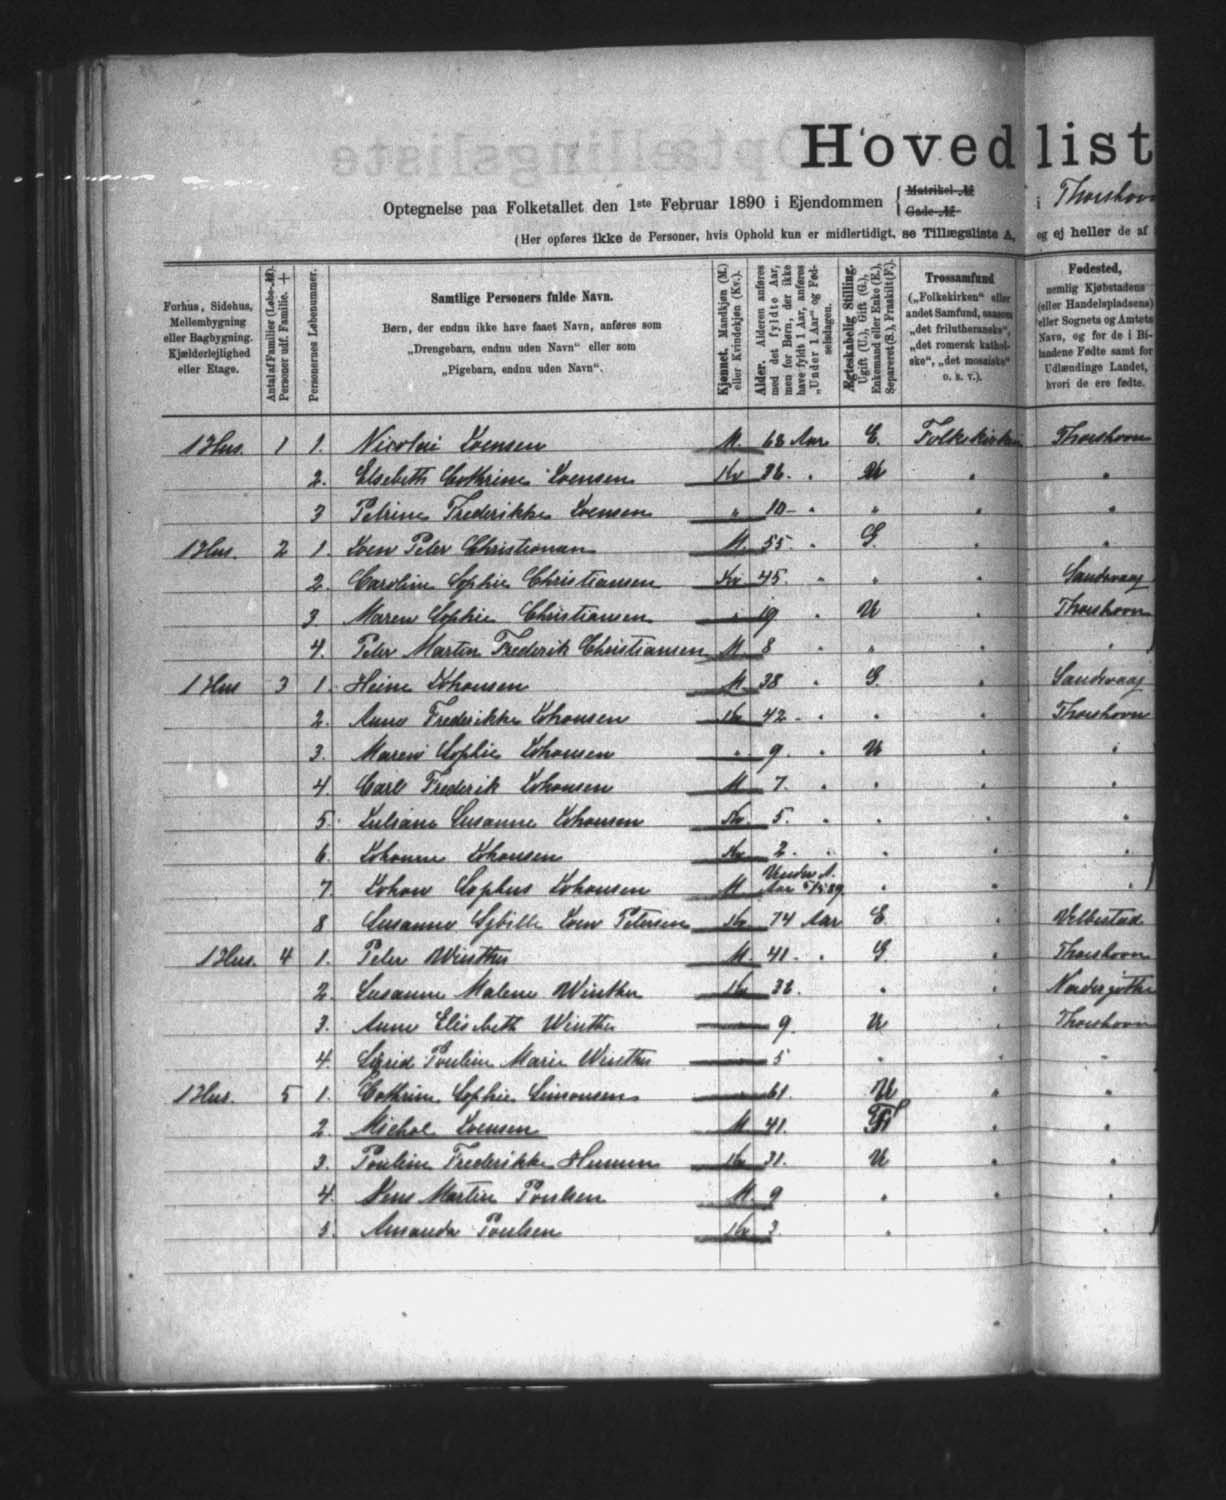 Hovedlist
Optegnelse paa Folketallet den 1ste Februar 1890 i Ejendommen { Matrikel-№ Gade-№ i Thorshavn
(Her opføres ikke de Personer, hvis Ophold kun er midlertidigt, se Tillægsliste A, og ej heller de af
Forhus, Sidehus, Mellembygning eller Bagbygning. Kjælderlejlighed eller Etage.
Antal af Familier (Løbe-№). Personer udf. Familie. +
Personernes Løbenummer.
Samtlige Personers fulde Navn.
Børn, der endnu ikke have faaet Navn, anføres som
„Drengebarn, endnu uden Navn“ eller som
„Pigebarn, endnu uden Navn“.
Kjønnet. Mandkjøn (M.) eller Kvindekjøn (Kv.).
Alder. Alderen anføres med det fyldte Aar, men for Børn, der ikke have fyldt 1 Aar, anføres „Under 1 Aar“ og Fødselsdagen.
Ægteskabelig Stilling. Ugift (U.), Gift (G.), Enkemand eller Enke (E.), Separeret (S.), Fraskilt (F.).
Trossamfund („Folkekirken“ eller andet Samfund, saasom „det frilutheranske“, „det romersk katholske“, „det mosaiske“ o. s. v.).
Fødested, nemlig Kjøbstadens (eller Handelspladsens) eller Sognets og Amtets Navn, og for de i Bilandene Fødte samt for Udlændinge Landet, hvori de ere fødte.
1 Hus. 1 1. Nicolai Joensen M. 68 Aar E. Folkekirken Thorshavn
2. Elsebeth Cathrine Joensen Kv 36. " U " "
3 Petrine Frederikke Joensen " 10 " " " "
1 Hus. 2 1. Joen Peter Christiansen M. 55. " G. " "
2. Caroline Sophie Christiansen Kv 45. " " " Sandevaag
3. Maren Sophie Christiansen " 19 " U " Thorshavn
4. Peter Martin Frederik Christiansen M. 8 " " " "
1 Hus 3 1. Heine Johansen M 38 " G. " Sandevaag
2. Anne Frederikke Johansen Kv 42 " " " Thorshavn
3. Maren Sophie Johansen " 9. " U " "
4 Carl Frederik Johansen M 7. " " " "
5. Juliane Susanne Johansen Kv. 5. " " " "
6. Johanne Johansen Kv 2. " " " "
7. Johan Sophus Johansen M Under 1 Aar " " "
8 Susanne Sybille Joen Petersen Kv 74 Aar E. " 
1 Hus. 4 1. Peter Winther M. 41. " G. " Thorshavn
2. Susanne Malene Winther Kv 38. " " Nordergøthe
3. Anne Elisabeth Winther " 9. U " Thorshavn
4. Sigrid Pouline Marie Winther " 5 " " "
1 Hus. 5 1. Cathrine Sophie Simonsen " 61. U " "
2. Michal Joensen M 41. " "
3. Pouline Frederikke Kv 31. U " "
4. Jens Martin Poulsen M 9 " " "
5. Amanda Poulsen Kv 3. " "